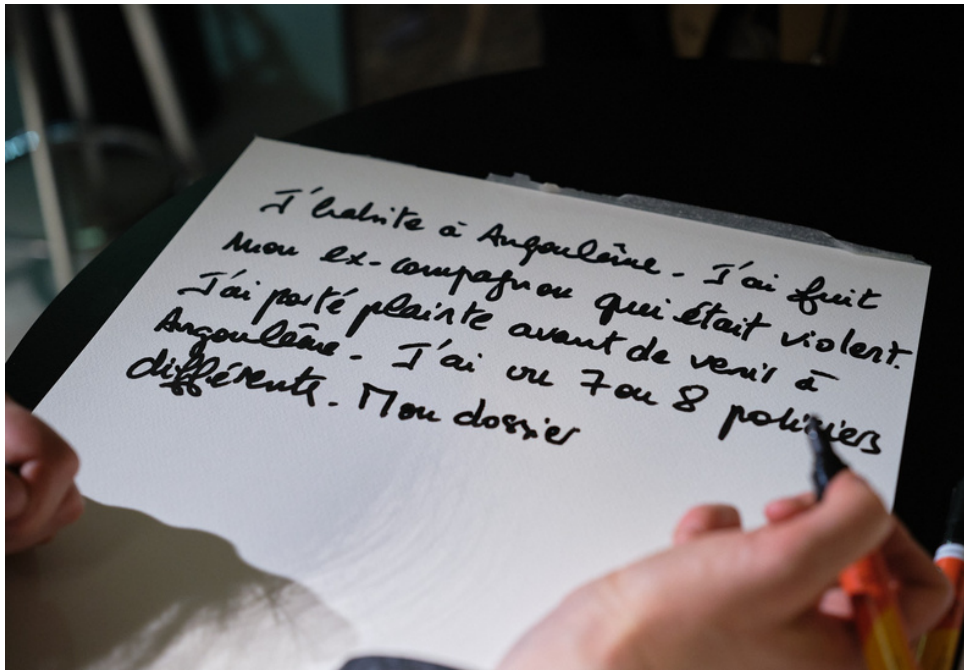 J'habite à Angoulême. J'ai fuit
mon ex-compagnon qui était violent.
J'ai porté plainte avant de venir à
Angoulême. J'ai vu 7 ou 8 policiers
différents. Mon dossier